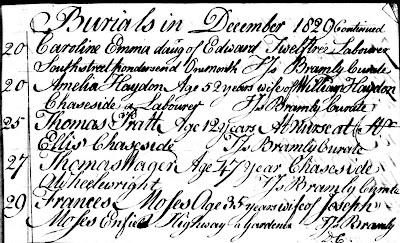 Burials in December 1829 Continued
20 Caroline Emma daug of Edward Twelftree Labourer
Southstreet Ponders end One month Ths Bramly Curate
20 Amelia Haydon Age 52 years wife of William Haydon
Chaseside a Labourer Ths Bramly Curate
25 Thomas Pratt Age 12 years At Nurse at
Ellis Chaseside Ths Bramly Curate
27 Thomas Wager Age 47 year Chaseside
a Wheelwright Ths Bramly Curate
29 Frances Moses Age 35 years wife of Joseph
Moses Enfield Highway a Gardener Ths Bramly